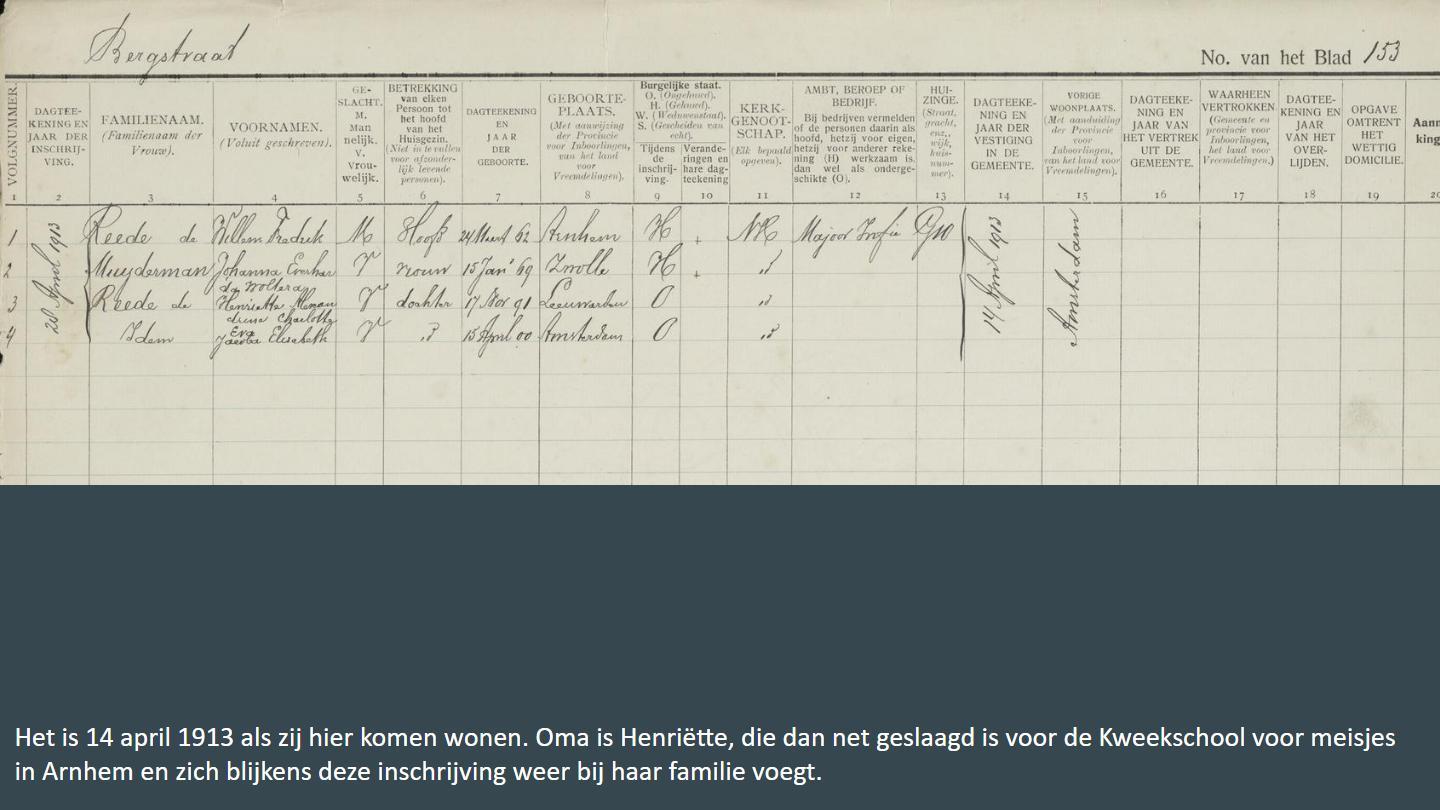 Bergstraat
No. van het Blad 153
VOLGNUMMER.
DAGTEE-
KENING EN
JAAR DER
INSCHRIJ-
VING.
FAMILIENAAM.
(Familienaam der
Vrouw).
VOORNAMEN.
(Voluit geschreven).
GE-
SLACHT.
M.
Man
nelijk.
V.
Vrou-
welijk.
BETREKKING
van elken
Persoon tot
het hoofd
van het
Huisgezin.
(Niet in te vullen
voor afzonder-
lijk levende
personen).
DAGTEEKENING
EN
JAAR
DER
GEBOORTE.
GEBOORTE-
PLAATS.
(Met aanwijzing
der Provincie
voor Inboorlingen,
van het land
voor
Vreemdelingen).
Burgelijke staat.
O. (Ongehuwd).
H. (Gehuwd).
W. (Weduwenstaat).
S. (Gescheiden van
echt).
Tijdens
de
inschrij-
ving.
Verande-
ringen en
hare dag-
teekening
KERK-
GENOOT-
SCHAP.
(Elk bepaald
opgeven).
AMBT, BEROEP OF
BEDRIJF.
Bij bedrijven vermelden
of de personen daarin als
hoofd, hetzij voor eigen,
hetzij voor anderer reke-
ning (H) werkzaam is.
dan wel als onderge-
schikte (O).
HUI-
ZINGE.
(Straat,
gracht,
enz.,
wijk,
huis-
num-
mer).
DAGTEEKE-
NING EN
JAAR DER
VESTIGING
IN DE
GEMEENTE.
VORIGE
WOONPLAATS.
(Met aanduiding
der Provincie
voor
Inboorlingen,
van het land voor
Vreemdelingen).
DAGTEEKE-
NING EN
JAAR VAN
HET VERTREK
UIT DE
GEMEENTE.
WAARHEEN
VERTROKKEN
(Gemeente en
provincie voor
Inboorlingen,
het land voor
Vreemdelingen.)
DAGTEE-
KENING EN
JAAR
VAN HET
OVER-
LIJDEN.
OPGAVE
OMTRENT
HET
WETTIG
DOMICILIE.
Aanm
king
1 2 3 4 5 6 7 8 9 10 11 12 13 14 15 16 17 18 19 20
20 April 1913
1 Reede de Willem Fredrik M Hoofd 24 Maart 62 Arnhem H + NH Majoor Infie G10
14 April 1913
Amsterdam
2 Muyderman Johanna Everhar
da Woltera V vrouw 15 Jan 69 Zwolle H + "
3 Reede de Henriette Alexan
drina Charlotte V dochter 17 Nov 91 Leeuwarden O "
4 Idem Eva
Jacoba Elisabeth V " 15 April 00 Amsterdam O "
Het is 14 april 1913 als zij hier komen wonen. Oma is Henriëtte, die dan net geslaagd is voor de Kweekschool voor meisjes
in Arnhem en zich blijkens deze inschrijving weer bij haar familie voegt.